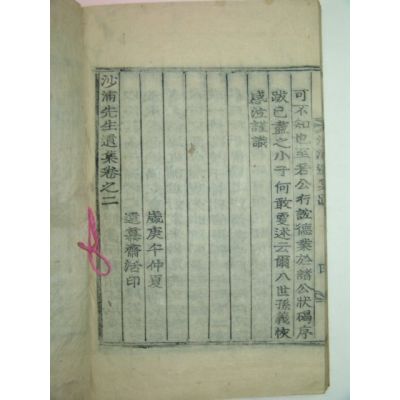 可不知也至若公行誼德業於諸公狀碣序
跋已盡之小子何敢更述云爾八世孫義校
感泣謹識
歲庚午仲夏
遠慕齋活印
沙浦先生遺集卷之二